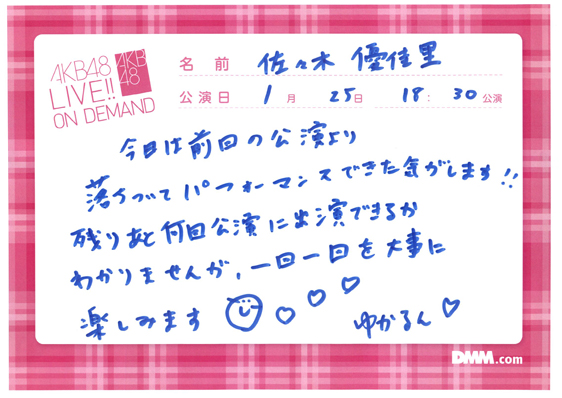 AKB48
LIVE!!
ON DEMAND
AKB
48
名 前 佐々木 優佳里
公演日 1月 25日 18:30公演
今日は前回の公演より
落ちついてパフォーマンスできた気がします!!
残りあと何回公演に出演できるか
わかりませんが、一回一回を大事に
楽しみます
ゆかるん♡
DMM.com